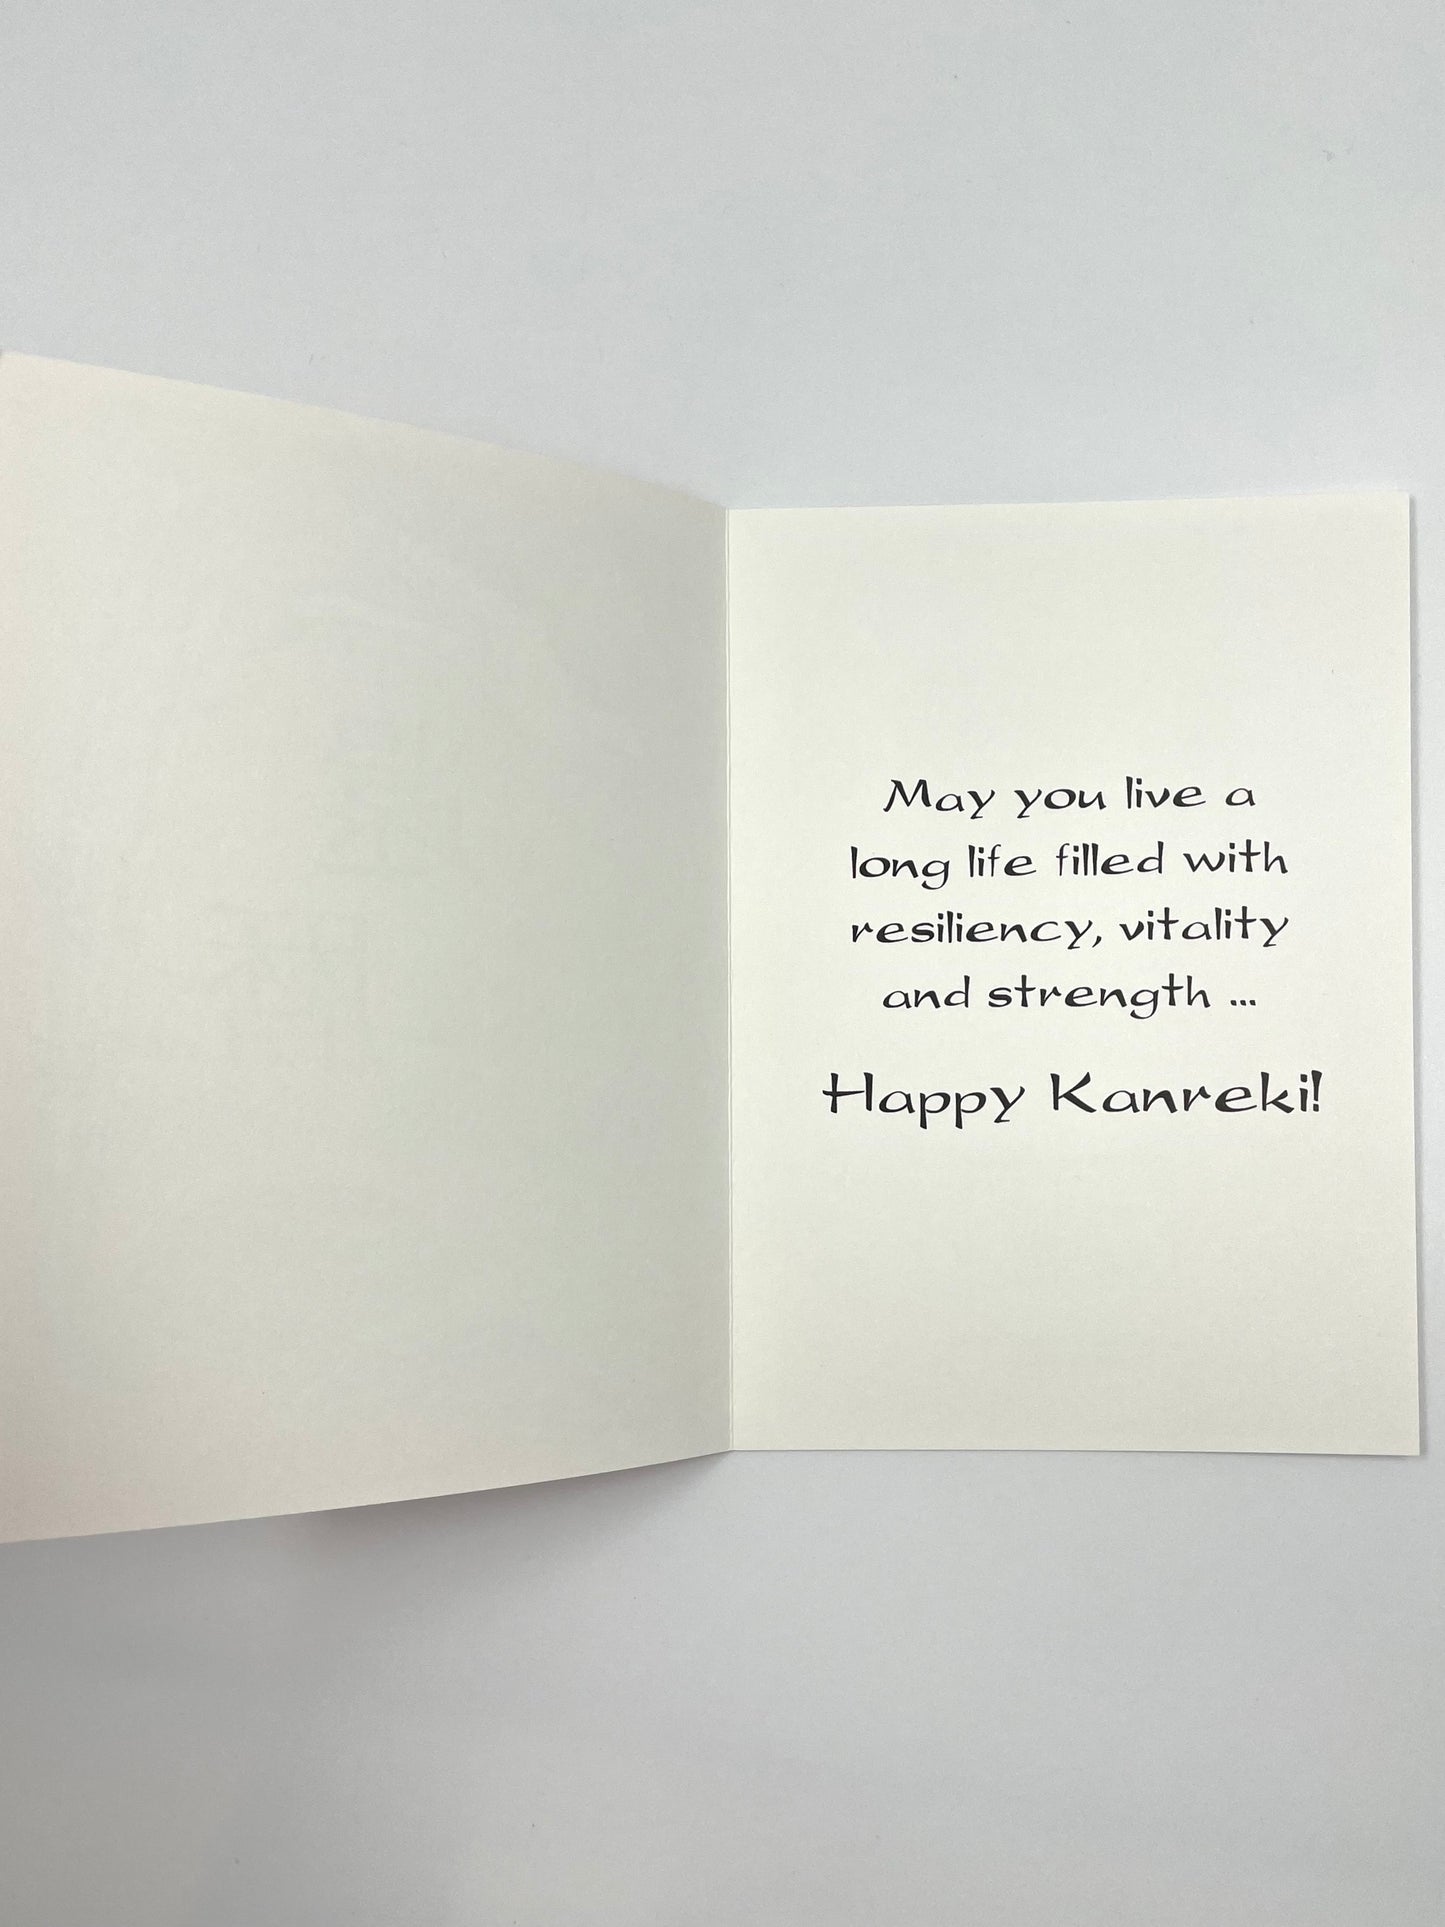 May you live a
long life filled with
resiliency, vitality
and strength ...
Happy Kanreki!